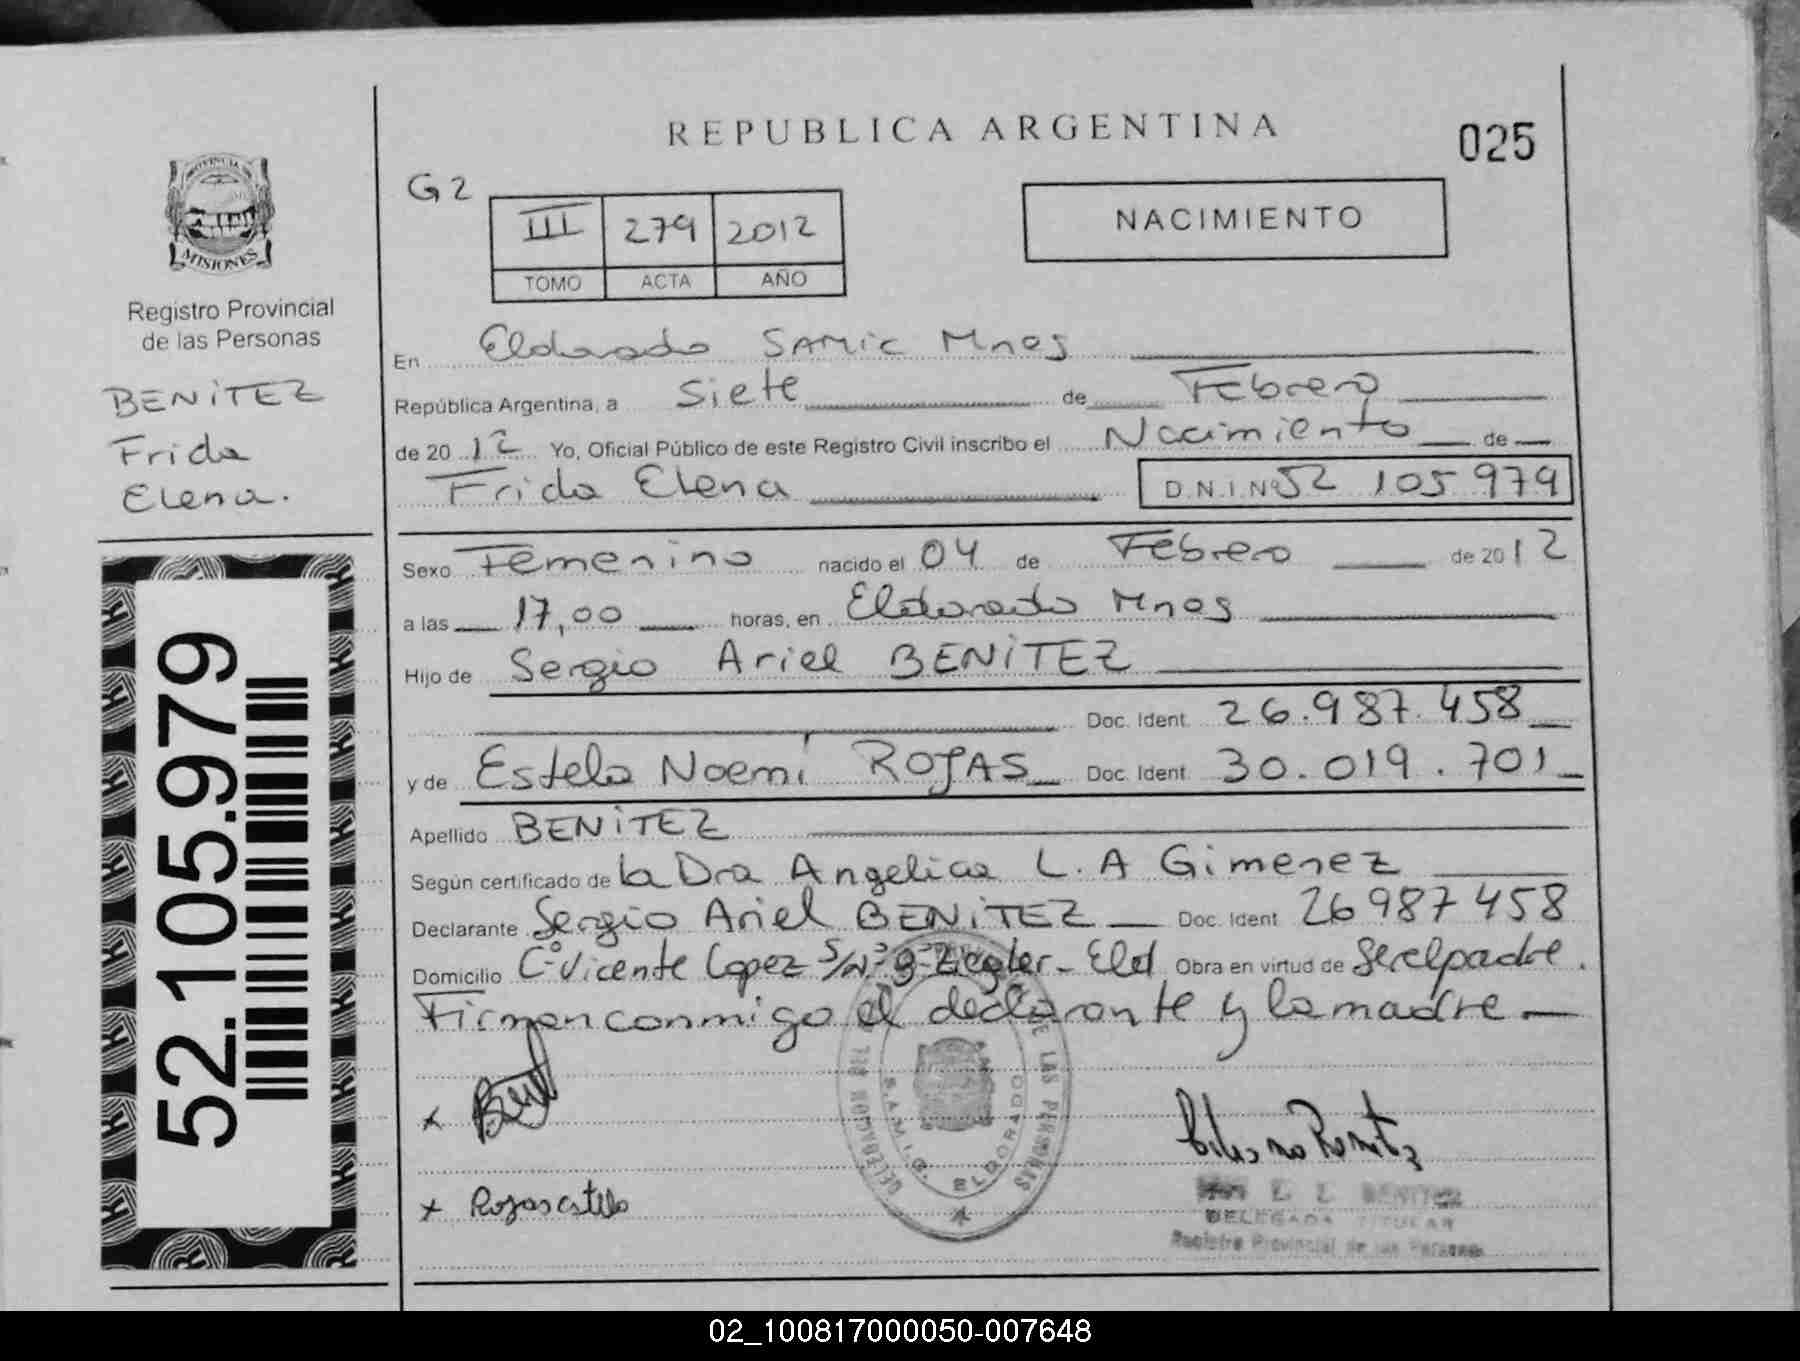 REPUBLICA ARGENTINA
025
PROVINCIA DE
MISIONES
Registro Provincial
de las Personas
BENITEZ
Frida
Elena.
52.105.979
G2
III 279 2012
TOMO ACTA AÑO
NACIMIENTO
En Eldorado SAMIC Mnes
República Argentina, a Siete de Febrero
de 2012 Yo, Oficial Público de este Registro Civil inscribo el Nacimiento de
Frida Elena D.N.I.Nº 52 105 979
Sexo Femenino nacido el 04 de Febrero de 2012
a las 17,00 horas, en Eldorado Mnes
Hijo de Sergio Ariel BENITEZ
Doc. Ident. 26.987.458
y de Estela Noemí ROJAS Doc. Ident. 30.019.701
Apellido BENITEZ
Según certificado de la Dra Angelica L.A Gimenez
Declarante Sergio Ariel BENITEZ Doc. Ident. 26987458
Domicilio Cº Vicente Lopez S/Nº Bº Ziegler - Eld Obra en virtud de Ser el padre.
Firman conmigo el declarante y la madre
DE LAS PERSONAS
S.A.M.I.C. ELDORADO
x Rojas Estela
BENITEZ
DELEGADA TITULAR
Registro Provincial de las Personas
02_100817000050-007648